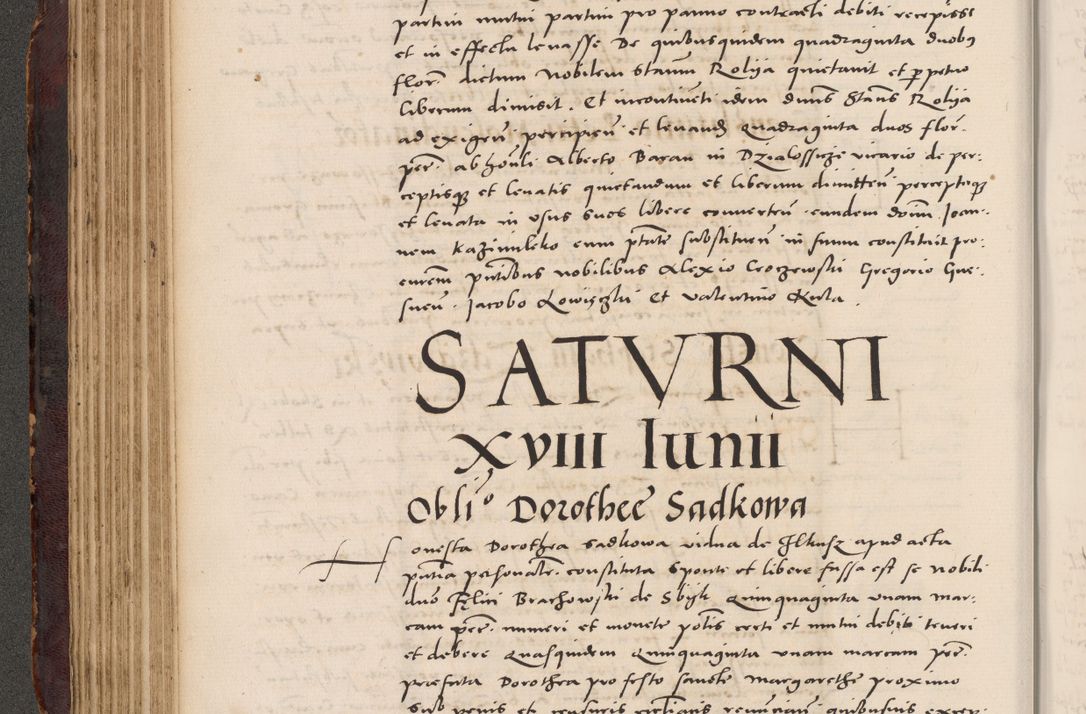 partim mutui partim pro panno contracti debiti recepisse
et in effectu levasse De quibusquidem quadraginta duobus
flor. dictum Nobilem Stanm Rolyja quietavit et perpetuo
liberum dimisit. Et incontinēti idem dnus Stans Rolija
ad exigēn percipien et levand Quadraginta duos flor.
per. ab honli Alberto Baran in Dzialossicze vicario de per:
ceptisque et levatis quietandum et liberum dimitten perceptaque
et levata in usus suos libere converten. eundem dnum Joan:
nem Kazimilsko cum ptate substituen in suum constituit pro:
curem pntibus nobilibus Alexio Croczewski Gregorio
Jacobo Lowiczki Et Valentino Kula.
SATVRNI
XVIII Iunii
Oblio Dorothee Sadkowa
Honesta Dorothea Sadkowa vidua de Ilkusz apud acta
pntia personalr. constituta sponte et libere fassa est se nobili
dno Felici Brachowski de Sbyk Quinquaginta unam mar:
cam per. numeri et monete polis certi et mutui debiti teneri
et debere Quasquidem Quinquaginta unam marcam per.
praefata Dorothea pro festo sancte Margarethe proximo
sub penis et censuris ecclicis